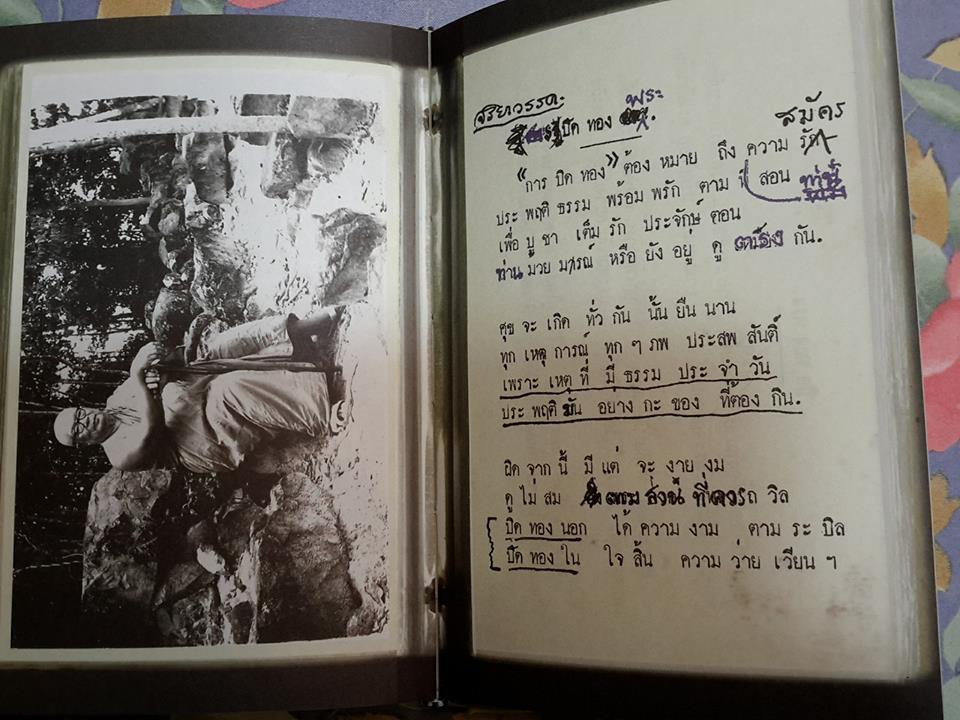 จริยาวรรค:
ปิด ทอง พระ.
สมัคร
"การ ปิด ทอง" ต้อง หมาย ถึง ความ รัก
ประ พฤติ ธรรม พร้อม พรัก ตาม ที่ สอน
เพื่อ บู ชา เต็ม รัก ประจักษ์ ตอน
ท่าน ม้วย มรณ์ หรือ ยัง อยู่ ดู กัน.
ศุข จะ เกิด ทั่ว กัน นั้น ยืน นาน
ทุก เหตุ การณ์ ทุก ๆ ภพ ประสพ สันติ์
เพราะ เหตุ ที่ มี ธรรม ประ จำ วัน
ประ พฤติ มัน อย่าง กะ ของ ที่ต้อง กิน.
ผิด จาก นี้ มี แต่ จะ งาย งม
ดู ไม่ สม ที่ควร ถวิล
ปิด ทอง นอก ได้ ความ งาม ตาม ระ บิล
ปิด ทอง ใน ใจ สิ้น ความ ว่าย เวียน ฯ